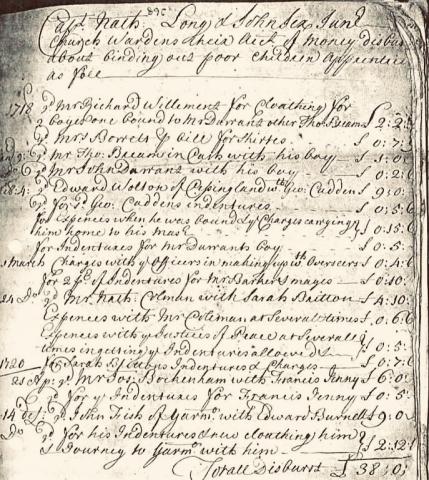 Capt Nath: Long & John Sex Junr
Church Wardens their Acct of Money disbur
about binding out poor Children Apprentice
as foll
1718 pd Mr Richard Willement for Cloathing for
2 boyes one bound to Mr Durrant other Tho: Beam £ 2: 2:
pd Mrs Borrets ye bill for Shirtes £ 0: 7:
pd Mr Tho: Beeum in Cash with his boy £ 1: 0:
Do pd Mr John Durrant with his boy £ 0: 2: 6
pd Edward Wolton of Cessingland wth Geo: Cuddon £ 9: 0:
pd for Geo: Cuddens indentures £ 0: 5: 6
for Expences when he was bound & ye Charges carrying
him home to his Masr £ 0: 15: 6
for Indentures for Mr Durrants boy £ 0: 5:
March Charges with ye Officers in making up wth Overseers £ 0: 4: 6
for 2 ps of Indentures for Mr Barker Images £ 0: 10:
24 Do pd Mr Nath: Colman with Sarah Britton £ 4: 10:
Expences with Mr Coleman at Severall times £ 0: 6: 6
Expences with ye Justices of Peace at Severall
times in getting ye Indentures allowed £ 0: 5:
for Sarah Indentures & Charges £ 0: 7: 6
1720
21 Ap: pd Mr Jos: Bockenham with Francis Jenny £ 6: 0:
pd for ye Indentures for Francis Jenny £ 0: 5:
14 pd John Fisk of Yarmo with Edward Burnell £ 9: 0:
Do pd for his Indentures & new cloathing him
& Journey to Yarmo with him £ 2: 12:
Totall Disburst £ 38: 0: